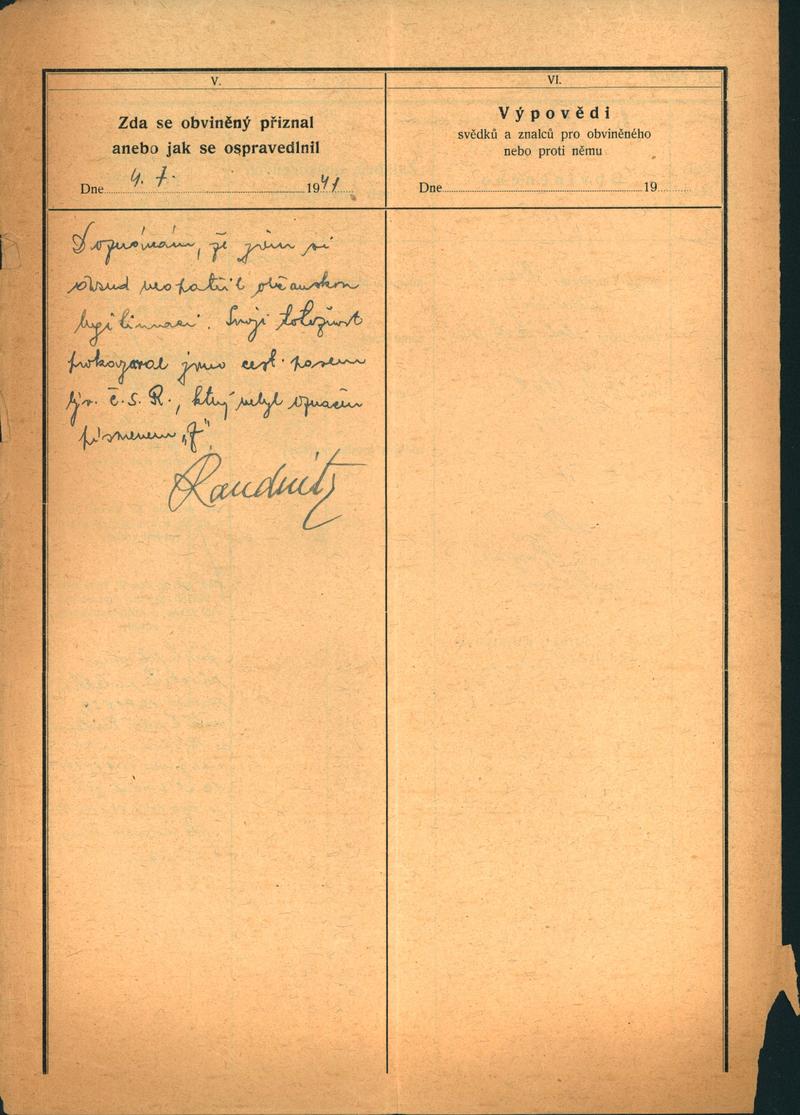 V.
Zda se obviněný přiznal
anebo jak se ospravedlnil
Dne 4. 7. 1941
Doznávám, že jsem si
dosud neopatřil občanskou
legitimaci. Svoji totožnost
prokazoval jsem cest. pasem
býv. č. S. R., který nebyl označen
písmenem „J".
Raudnitz
VI.
Výpovědi
svědků a znalců pro obviněného
nebo proti němu
Dne 19